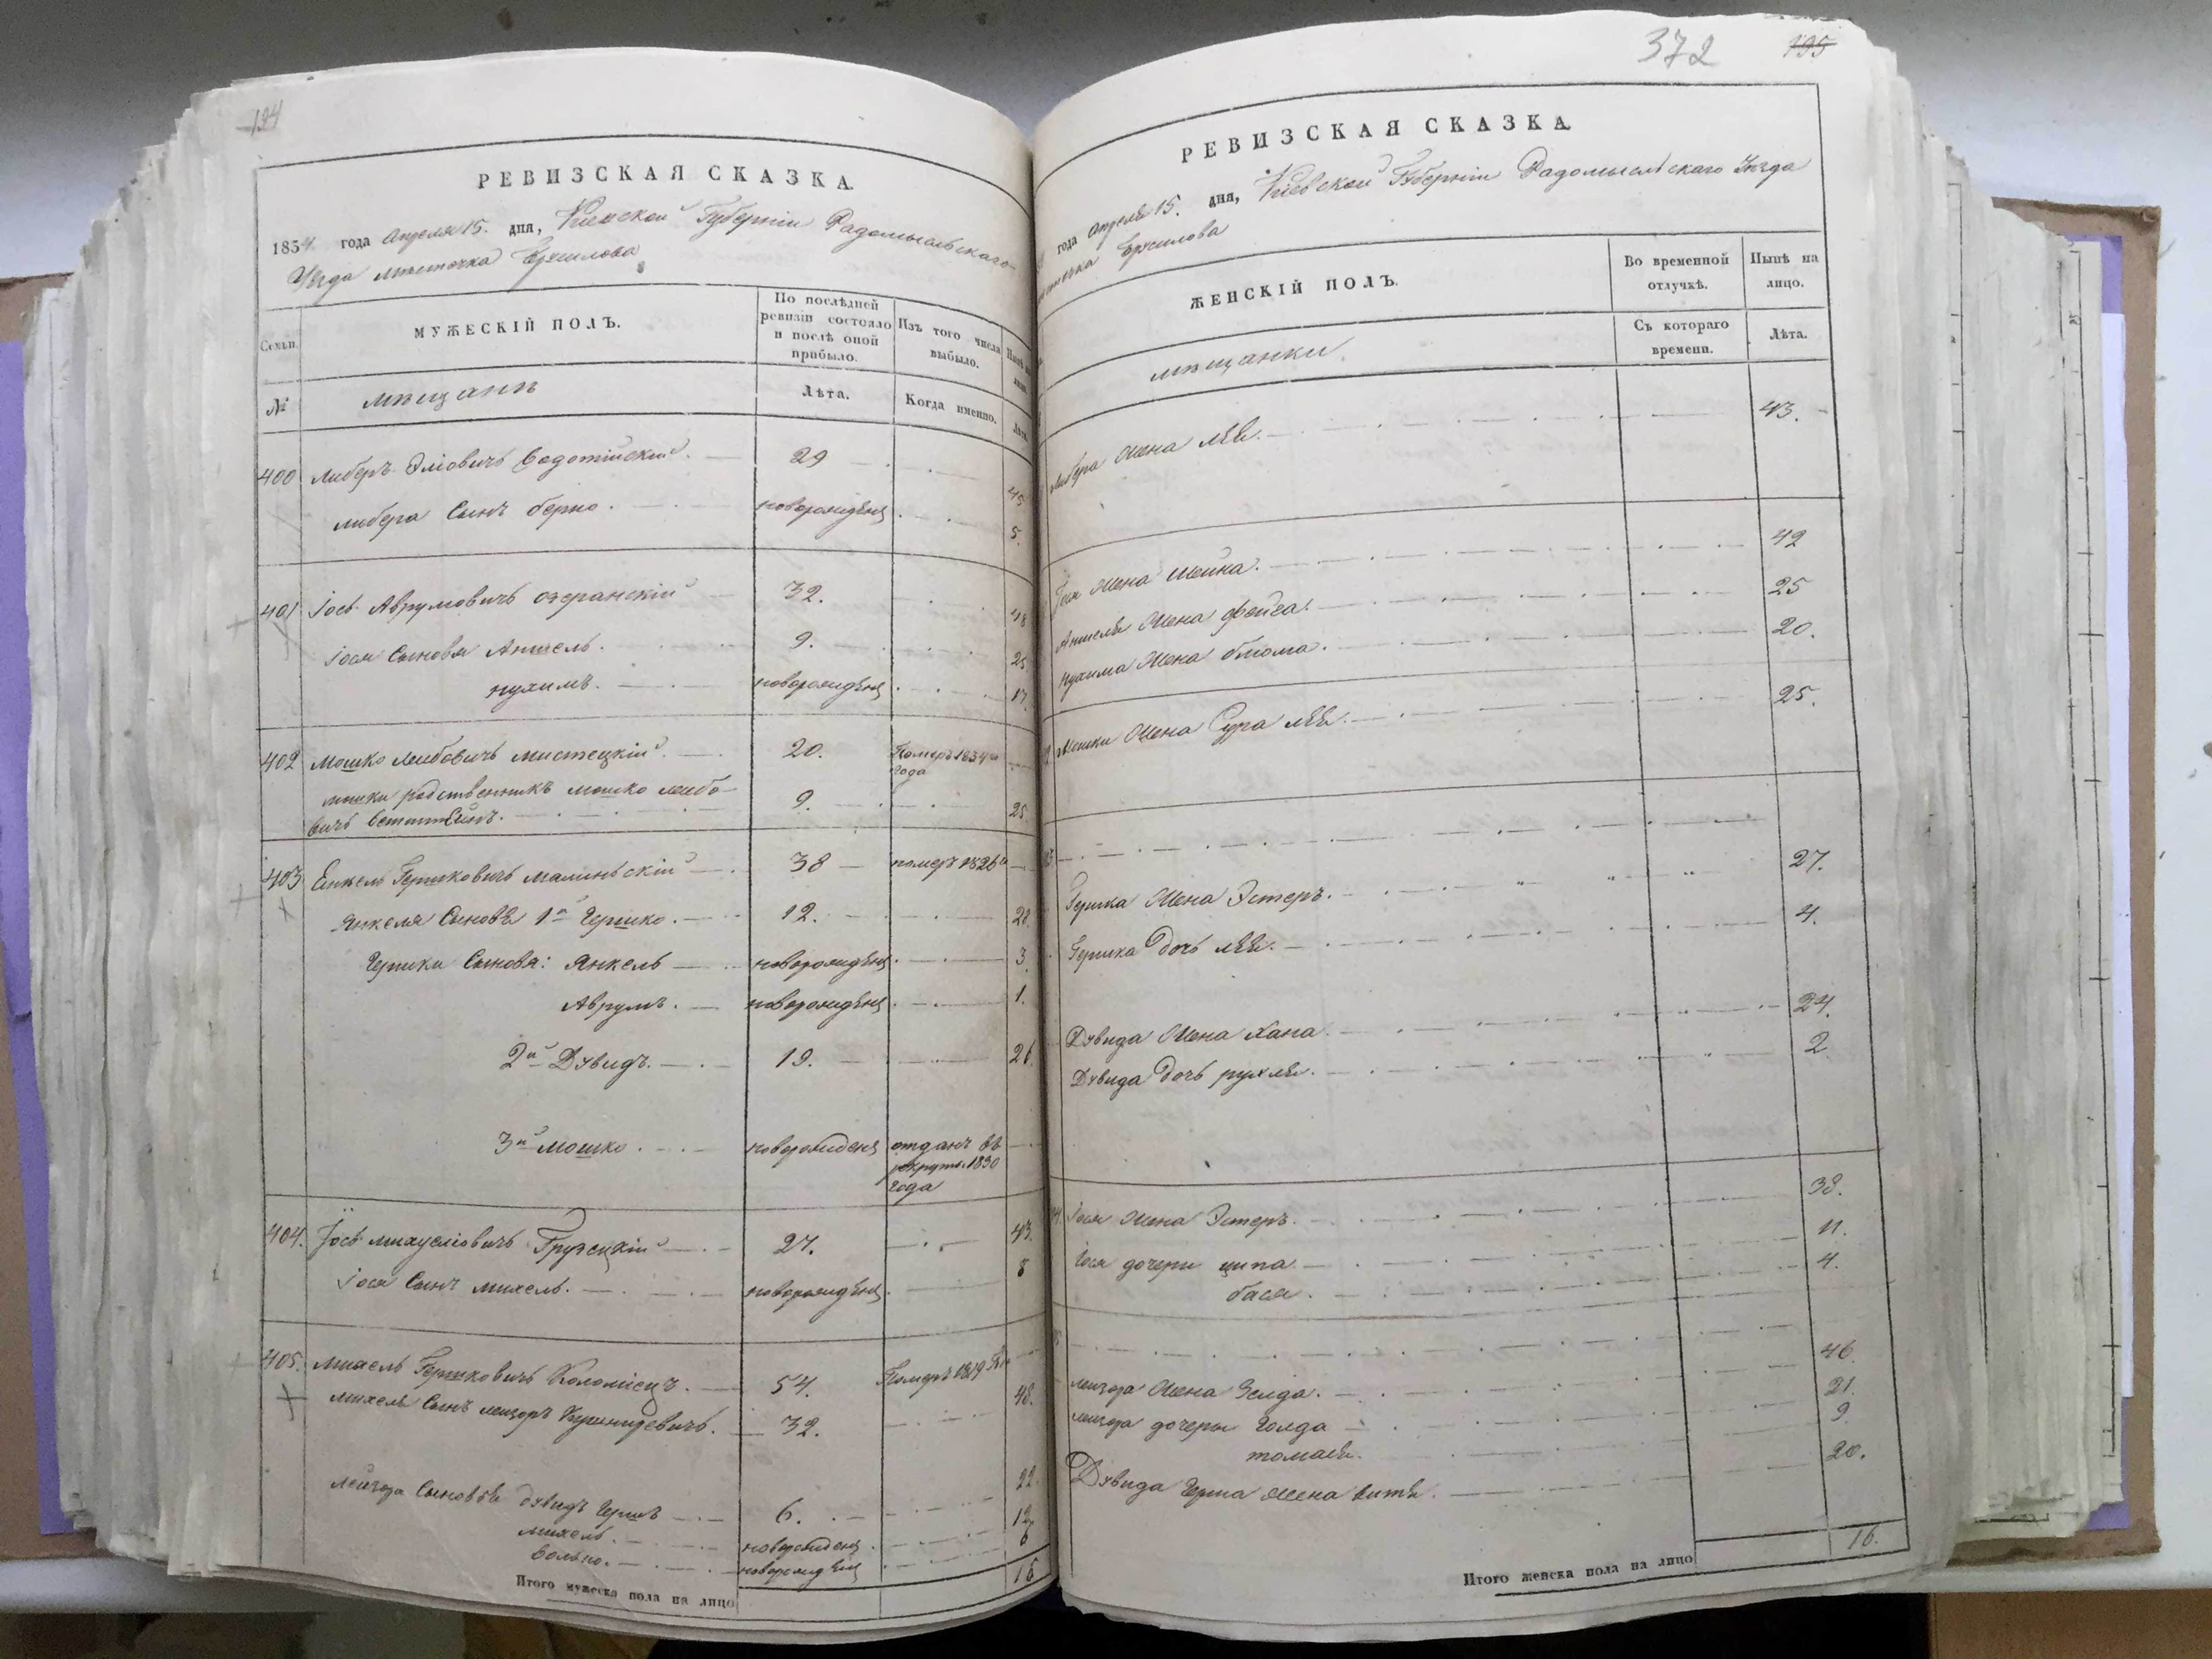 194
РЕВИЗСКАЯ СКАЗКА
1854 года Апреля 15. дня, Киевской Губернiи Радомысльскаго
Уѣзда мѣстечка Брусилова
Семьи. МУЖЕСКIЙ ПОЛЪ. По послѣдней ревизiи состояло и послѣ оной прибыло. Изъ того числа выбыло.
№ мѣщане Лѣта. Когда именно. Лѣта.
400 Либеръ Элiовичъ 29 45
либера Сынъ берко. новорожденъ 5.
401 Iось Аврумовичъ озеранскiй 32. 48
Iося Сыновья Аншель. 9. 25
нухимъ. новорожденъ 17.
402 Мошко Лейбовичъ мистецкiй. 20. Померъ 1834го года
мошки родственникъ мошко лейбо-
вичъ 9. 25
403 Енкель Гершковичъ малинскiй 38 померъ 1826
Янкеля Сыновья 1й Гершко. 12. 28
Гершки Сыновя: Янкель новорожденъ 3
Аврумъ. новорожденъ 1.
2й Дувидъ. 19. 26
3й Мошко. новорожденъ отданъ въ рекруты 1830 года
404. Iось михуелiовичъ Грузскiй 27. 43.
Iося Сынъ михель. новорожденъ 8
405. михель Гершковичъ Коломiецъ. 54. Померъ 1819
михеля Сынъ лейзоръ 32. 48.
Лейзора Сыновья дувидъ Гершъ 6. 22.
михель. новорожденъ 12.
волько. новорожденъ 6
Итого мужеска пола на лицо 16
372 195
РЕВИЗСКАЯ СКАЗКА
года Апреля 15. дня, Киевской Губернiи Радомысльскаго Уѣзда
Брусилова
ЖЕНСКIЙ ПОЛЪ. Во временной отлучкѣ. Нынѣ на лицо.
мѣщанки Съ котораго времени. Лѣта.
либера Жена лея. 43.
Iося Жена шейна. 42
Аншеля Жена фейга. 25
нухима Жена блюма. 20.
Мошки Жена Сура лея. 25.
Гершка Жена Эстеръ. 27.
Гершка дочь лея. 4.
Дувида Жена Хана. 24.
Дувида дочь рухля. 2
Iося Жена Эстеръ. 38.
Iося дочери ципа. 11.
бася. 4.
лейзора Жена Зелда. 46.
лейзора дочеры Голда 21.
9.
Дувида Герша жена витя. 20.
Итого женска пола на лицо 16.